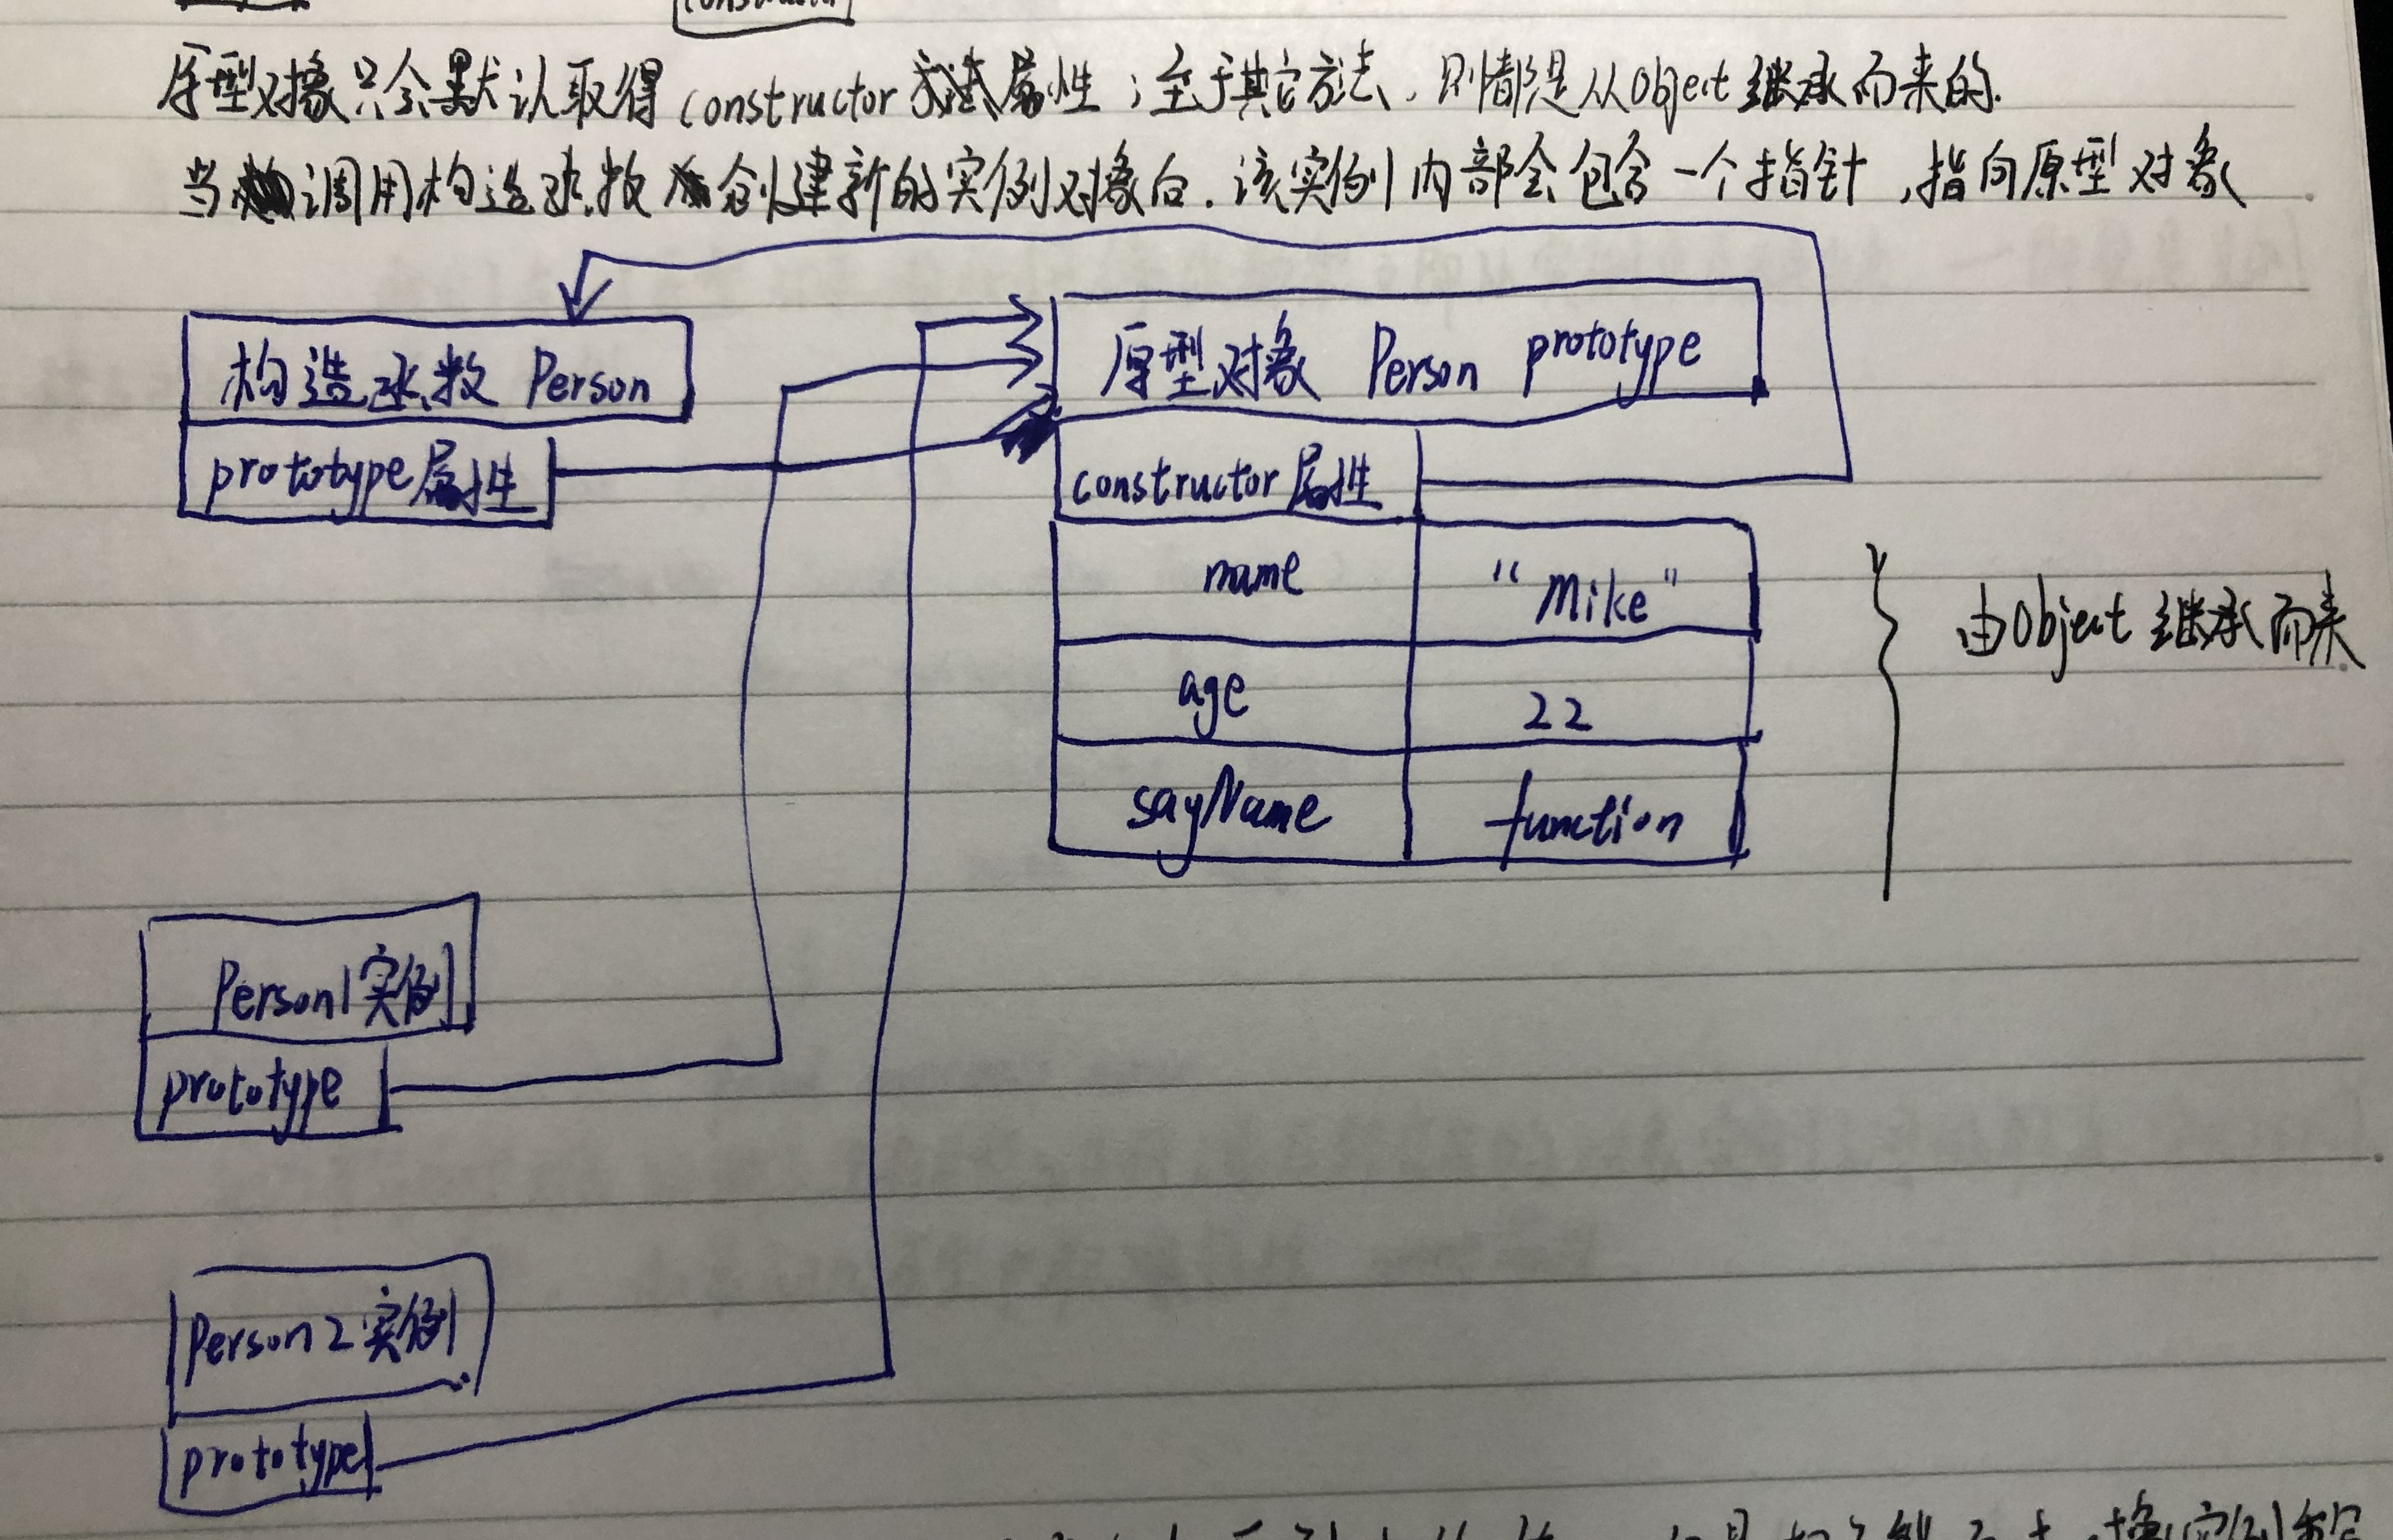 constructor
原型对象只会默认取得constructor属性；至于其它方法，则都是从Object继承而来的.
当调用构造函数创建新的实例对象后，该实例内部会包含一个指针，指向原型对象.
构造函数 Person
prototype属性
原型对象 Person prototype
constructor属性
name "Mike"
age 22
sayName function
由Object继承而来.
Person1实例
prototype
Person2实例
prototype